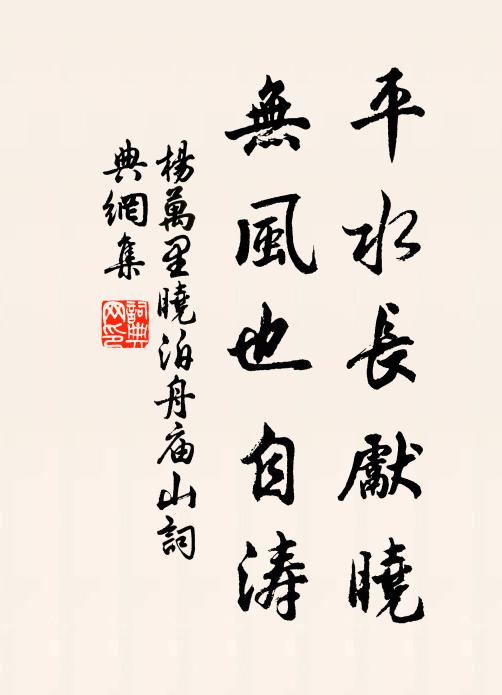 平水長獻曉
無風也自濤
楊萬里曉泊舟庙山詞
典網集
詞典
网印